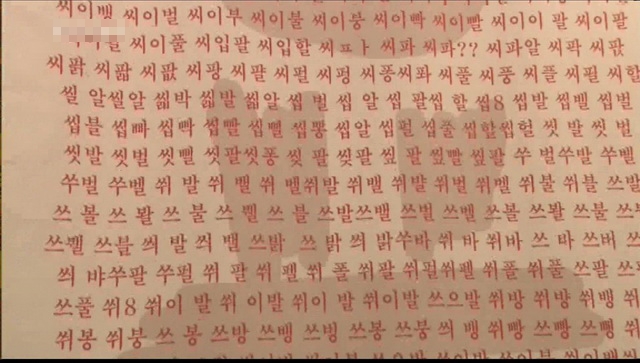 씨이벵 씨이벌 씨이부 씨이불 씨이붕 씨이빠 씨이빨 씨이이 팔 씨이팔
씨이풀 씨입팔 씨입할 씨ㅍㅏ 씨파 씨파?? 씨파알 씨팍 씨팎
씨팕 씨팗 씨팞 씨팡 씨팔 씨펄 씨펑 씨퐁씨퐈 씨풀 씨풍 씨플 씨필 씨할
씰 알씰알 씳박 씳발 씳알 씹 벌 씹 알 씹 팔씹 할 씹8 씹발 씹벨 씹벌
씹블 씹빠 씹빡 씹빨 씹뻴 씹뽕 씹알 씹펄 씹풀 씹할씹헐 씻 발 씻 벌
씻발 씻벌 씻뻴 씻팔씻퐁 씾 팔 씾팔 씿 팔 씿빨 씿팔 쑤 벌쑤발 쑤벨
쑤벌 쑤벨 쒸 발 쒸 벨 쒸 벨쒸발 쒸밸 쒸뱔 쒸벌 쒸벨 쒸불 쒸블 쓰발
쓰 볼 쓰 봘 쓰 불 쓰 벨 쓰 블 쓰발쓰밸 쓰벌 쓰벨 쓰볼 쓰봘 쓰불 쓰
쓰벨 쓰블 씌 발 씌 밸 쓰밝 쓰 밝 씌 밝쑤바 쒸 바 쒸바 쓰 바 쓰버 쓰
씌 뱌쑤팔 쑤펄 쒸 팔 쒸 펠 쒸 폴 쒸팔 쒸펄쒸펠 쒸폴 쒸풀 쓰팔 쓰
쓰풀 쒸8 쒸이 발 쒸 이발 쒸이 발 쒸이발 쓰으발 쒸방 쒸방 쒸벵 쒸
쒸봉 쒸붕 쓰 봉 쓰방 쓰벵 쓰빙 쓰봉 쓰붕 씌 벵 쒸빵 쓰빵 쓰뺑 쓰